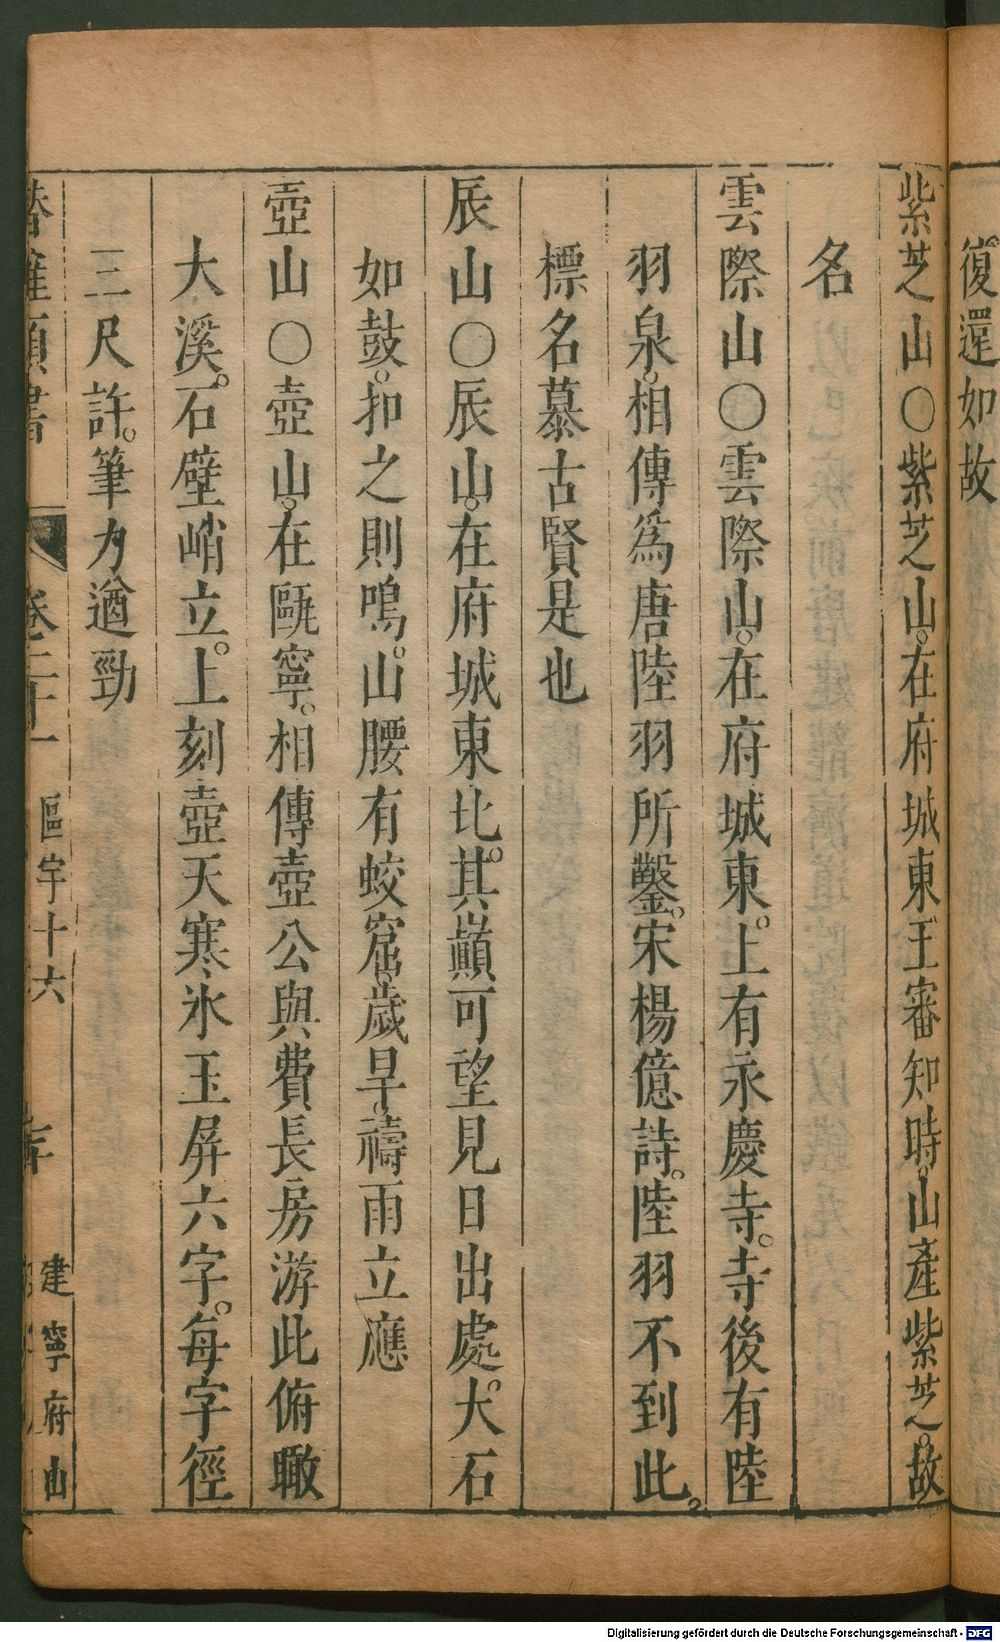 復還如故
紫芝山○紫芝山。在府城東王審知時。山產紫芝。故
名
雲際山○雲際山。在府城東。上有永慶寺。寺後有陸
羽泉。相傳爲唐陸羽所鑿。宋楊億詩。陸羽不到此。
標名慕古賢是也
辰山○辰山。在府城東北。其巔可望見日出處。大石
如鼓。扣之則鳴。山腰有蛟窟。歲旱。禱雨立應
壺山○壺山。在甌寧。相傳壺公與費長房游此俯瞰
大溪。石壁峭立。上刻壺天寒氷玉屏六字。每字徑
三尺許。筆力遒勁
類書 卷二十一 區宇十六 建寧府山
Digitalisierung gefördert durch die Deutsche Forschungsgemeinschaft - DFG